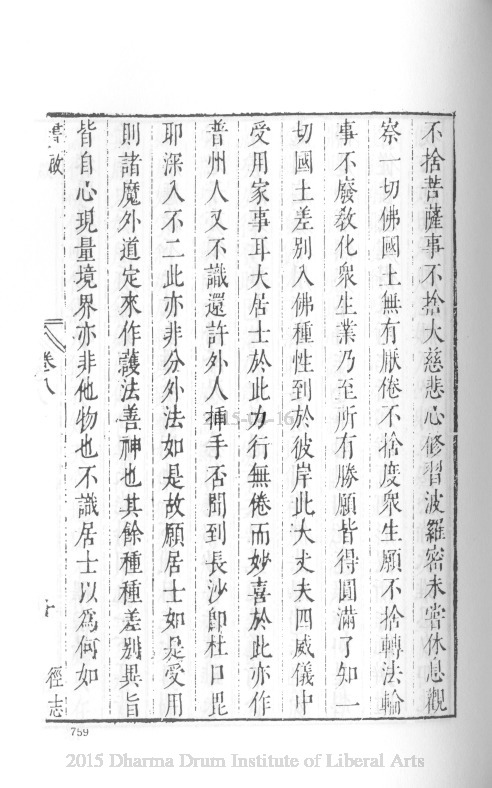 不捨菩薩事不捨大慈悲心修習波羅密未嘗休息觀
察一切佛國土無有厭倦不捨度衆生願不捨轉法輪
事不廢敎化衆生業乃至所有勝願皆得圓滿了知一
切國土差別入佛種性到於彼岸此大丈夫四威儀中
受用家事耳大居士於此力行無倦而妙喜於此亦作
普州人又不識還許外人揷手否聞到長沙卽杜口毘
耶深入不二此亦非分外法如是故願居士如是受用
則諸魔外道定來作護法善神也其餘種種差別異旨
皆自心現量境界亦非他物也不識居士以爲何如
書啟 卷八 十 徑志
759
2015 Dharma Drum Institute of Liberal Arts